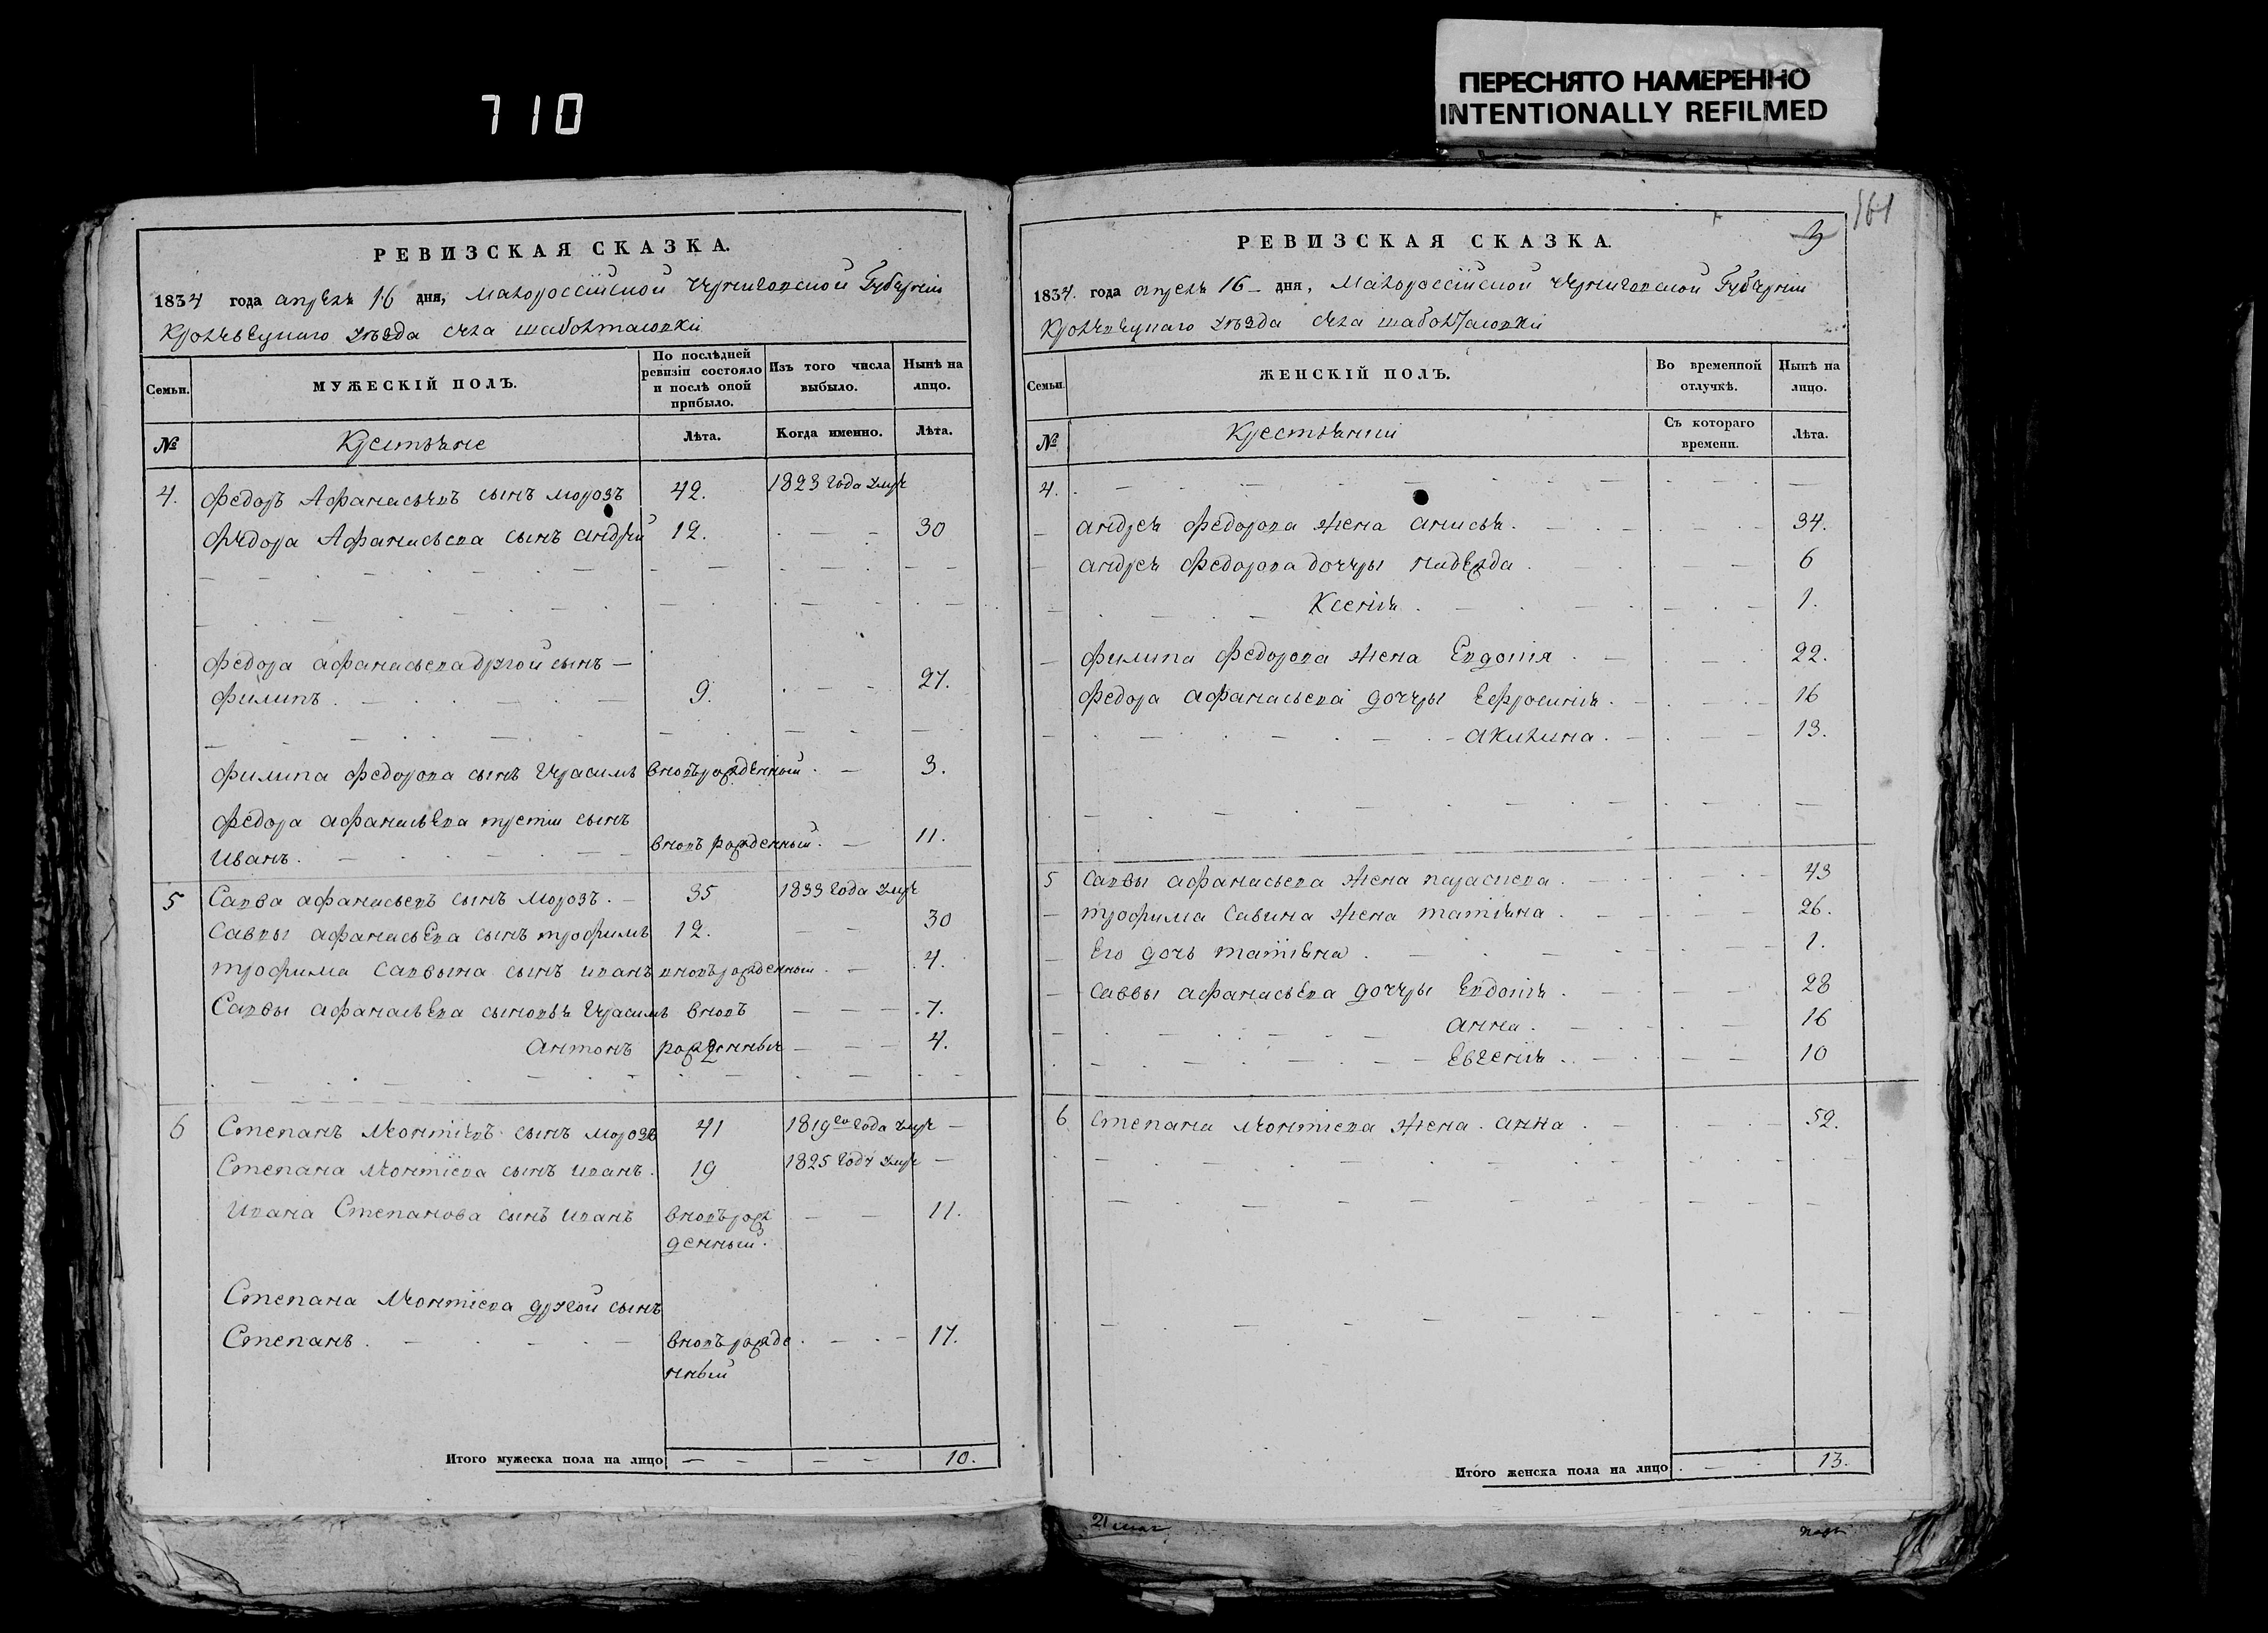 ПЕРЕСНЯТО НАМЕРЕННО
INTENTIONALLY REFILMED
710
РЕВИЗСКАЯ СКАЗКА.
1834 года апреля 16 дня, Малороссійской Черниговской Губерніи
Кролевецкаго уезда села шаболтасовки
Семьи.
МУЖЕСКІЙ ПОЛЪ.
По послѣдней ревизіи состояло и послѣ оной прибыло.
Изъ того числа выбыло.
Нынѣ на лицо.
№
Крестьяне
Лѣта.
Когда именно.
Лѣта.
4. Федоръ Афанасьевъ сынъ морозъ 42. 1823 года умре
Федора Афанасьева сынъ андрей 12. 30
Федора афанасьева другой сынъ
филипъ 9. 27.
филипа федорова сынъ Герасимъ вновърожденный 3.
федора афанасьева третій сынъ
иванъ вновъ рожденный 11.
5 Савва афанасьевъ сынъ морозъ 35 1833 года умре
Саввы афанасьева сынъ трофимъ 12. 30
трофима Саввина сынъ иванъ вновърожденный 4.
Саввы афанасьева сыновья Герасимъ вновъ 7.
антонъ рожденные 4.
6 Степанъ Моятіевъ сынъ морозъ 41 1819го года умре
Степана Моятіева сынъ иванъ 19 1825 года умре
Ивана Степанова сынъ иванъ вновърож 11.
денный.
Степана Моятіева другой сынъ
Степанъ вновърожде 17.
нный
Итого мужеска пола на лицо 10.
161
3
РЕВИЗСКАЯ СКАЗКА.
1834. года апреля 16 дня, Малороссійской Черниговской Губерніи
Кролевецкаго уезда села шаболтасовки
Семьи.
ЖЕНСКІЙ ПОЛЪ.
Во временной отлучкѣ.
Нынѣ на лицо.
№
Крестьянки
Съ котораго времени.
Лѣта.
4.
андрея федорова жена анисья 34.
андрея федорова дочери надежда 6
Ксенія 1.
филипа федорова жена Евдотія 22.
федора афанасьева дочери Ефросинія 16
акилина 13.
5 Саввы афанасьева жена параскева 43
трофима Савина жена татіяна 26.
Его дочь татіяна 1.
Саввы афанасьева дочери Евдотія 28
анна 16
Евгенія 10
6 Степана Моятіева жена анна 52.
Итого женска пола на лицо 13.
21